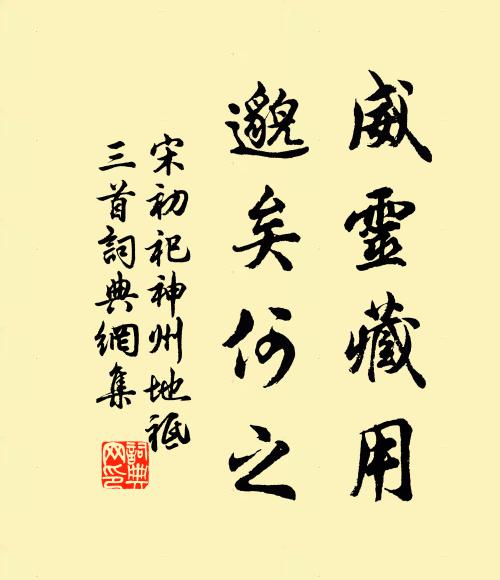 威靈藏用
邈矣何之
宋初祀神州地祗
三首詞典網集
詞典網印